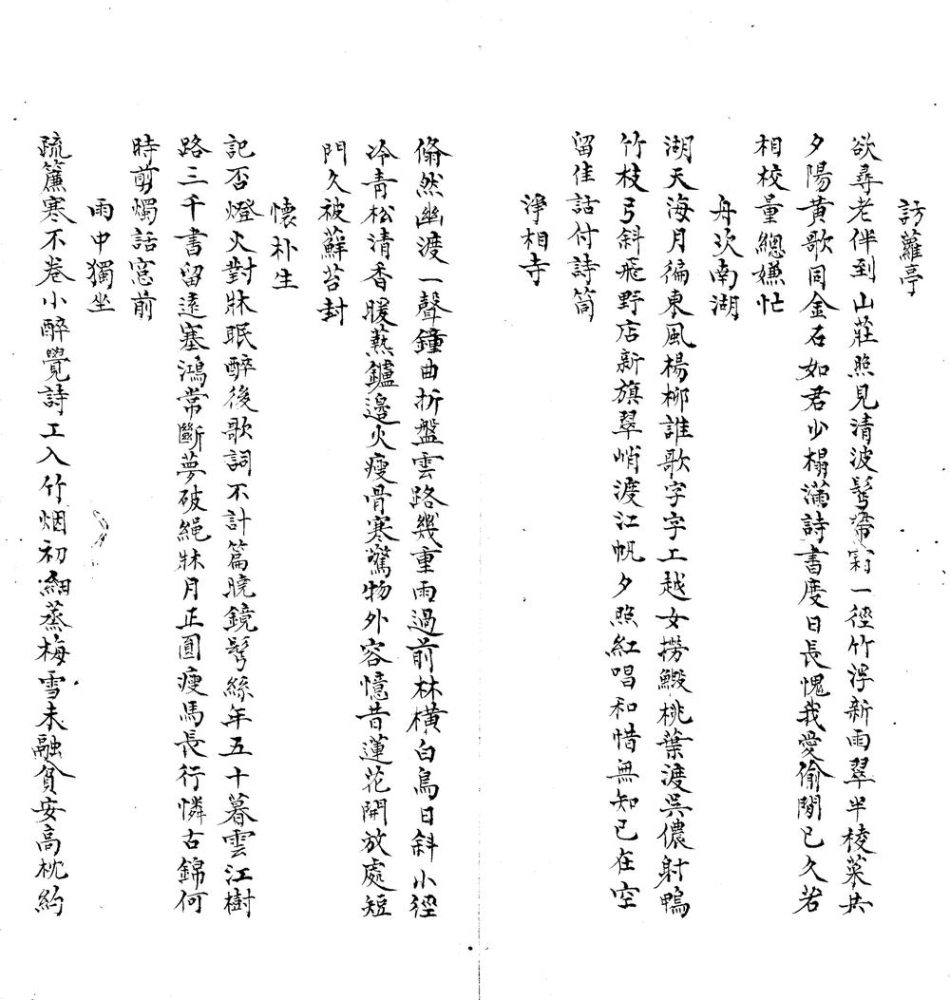 訪蘿亭
欲尋老伴到山莊照見清波鬢帶霜一徑竹浮新雨翠半稜菜共
夕陽黃歌同金石如君少榻滿詩書度日長愧我愛偷閒已久若
相校量總嫌忙
舟次南湖
湖天海月徧東風楊柳誰歌字字工越女撈鰕桃葉渡吳儂射鴨
竹枝弓斜飛野店新旗翠峭渡江帆夕照紅唱和惜無知己在空
留佳話付詩筒
淨相寺
翛然幽渡一聲鐘曲折盤雲路幾重雨過前林橫白鳥日斜小徑
冷青松清香暖爇鑪邊火瘦骨寒驚物外容憶昔蓮花開放處短
門久被蘇苔封
懷朴生
記否燈火對牀眠醉後歌詞不計篇曉鏡鬢絲年五十暮雲江樹
路三千書留遠塞鴻常斷夢破繩牀月正圓瘦馬長行憐古錦何
時剪燭話窓前
雨中獨坐
疏簾寒不卷小醉覺詩工入竹烟初細蒸梅雪未融貧安高枕約